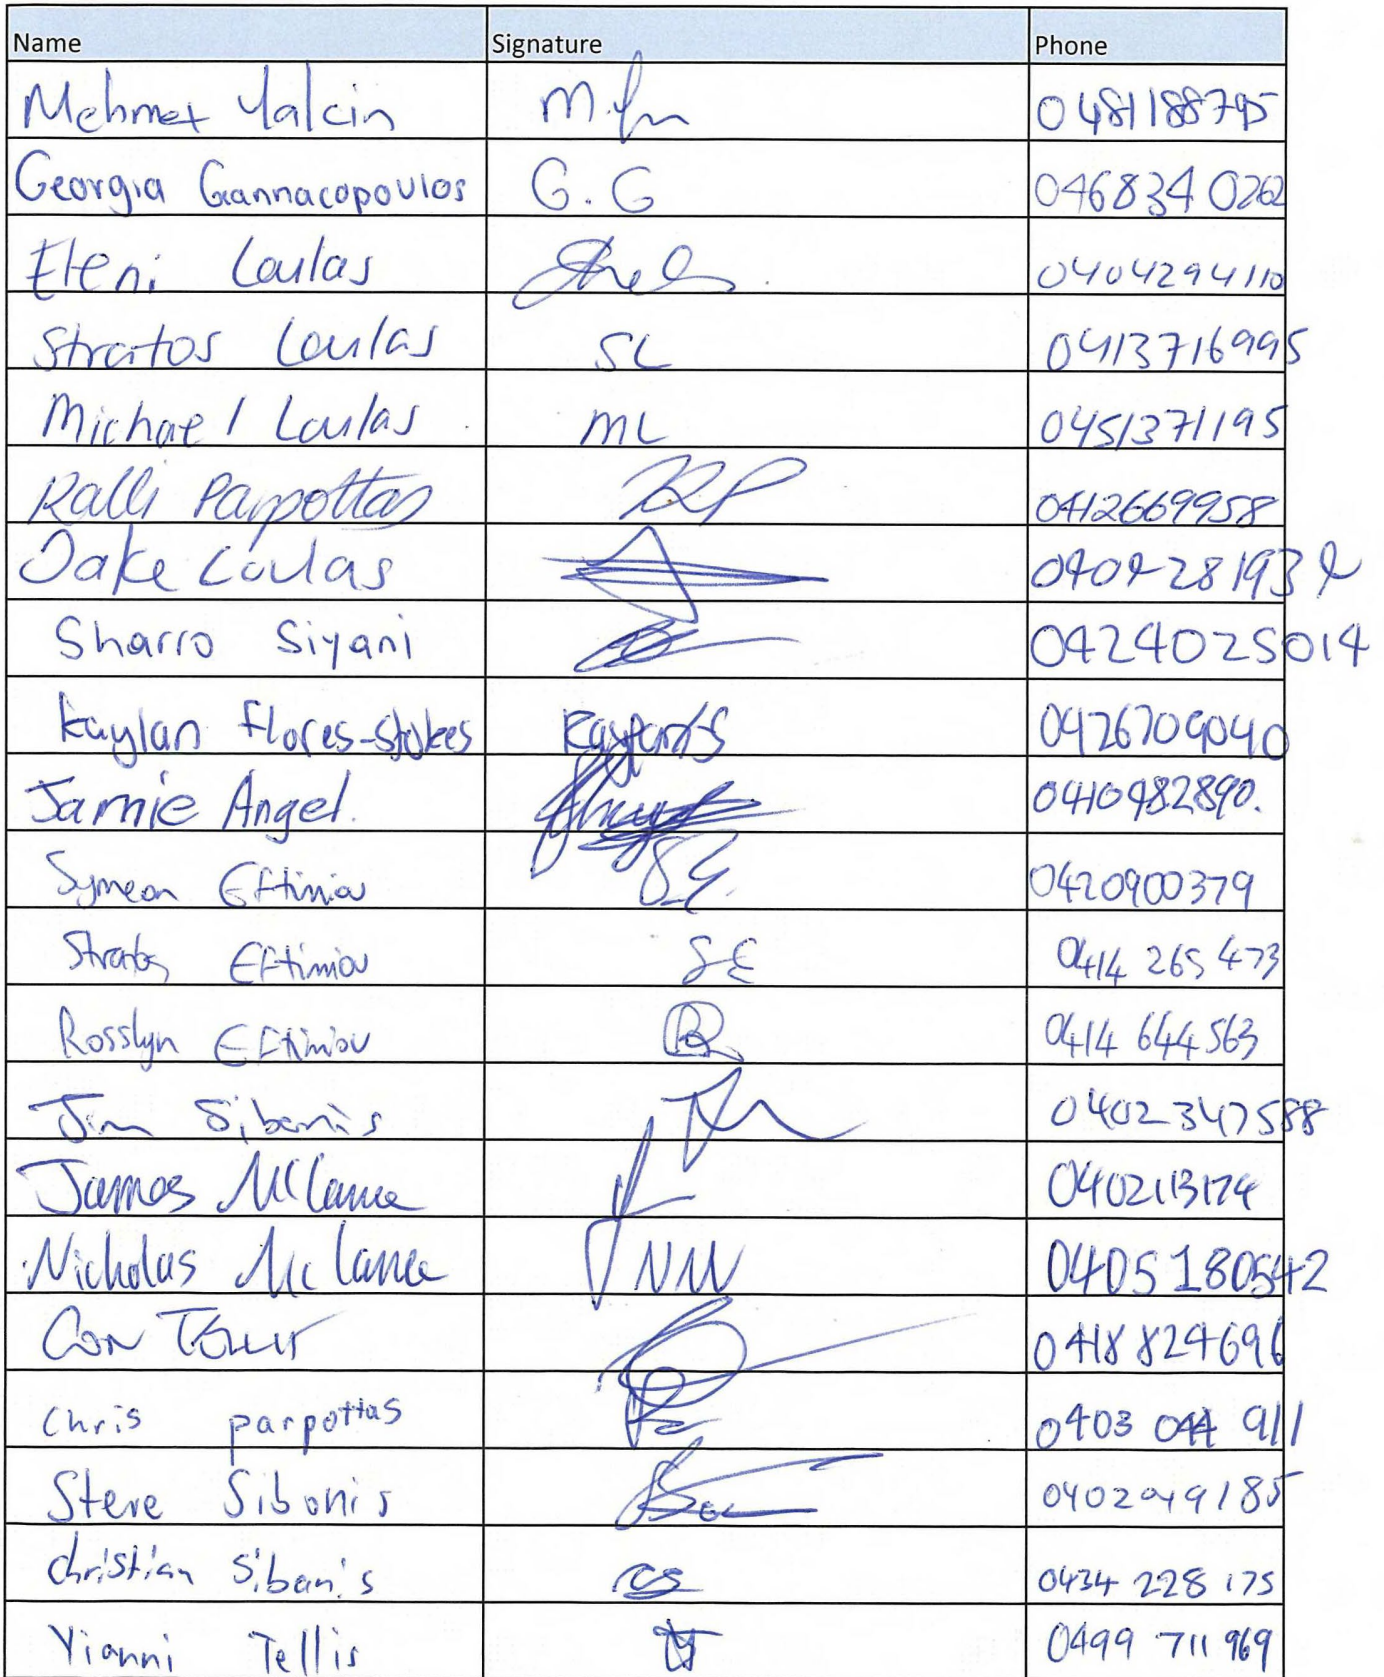 Name Signature Phone
Mehmet Yalcin 0481188795
Georgia Giannacopoulos G.G 0468340262
Eleni Loulas 0404294110
Stratos Loulas SL 0413716995
Michael Loulas ML 0451371195
Ralli Parpottas RP 0412669958
Jake Loulas 0404281934
Sharro Siyani 0424025014
Kaylan Flores-Stokes 0426709040
Jamie Angel. 0410482890.
Symeon Eftimiou SE. 0420900379
Stratos Eftimiou SE 0414 265 473
Rosslyn Eftimiou 0414 644 563
Jim Sibonis 0402347588
James McCance 0402113174
Nicholas McCance NM 0405180542
Con 0418824696
Chris parpottas 0403 044 911
Steve Sibonis 0402049185
Christian Sibonis CS 0434 228 175
Yianni Tellis 0499 711 969